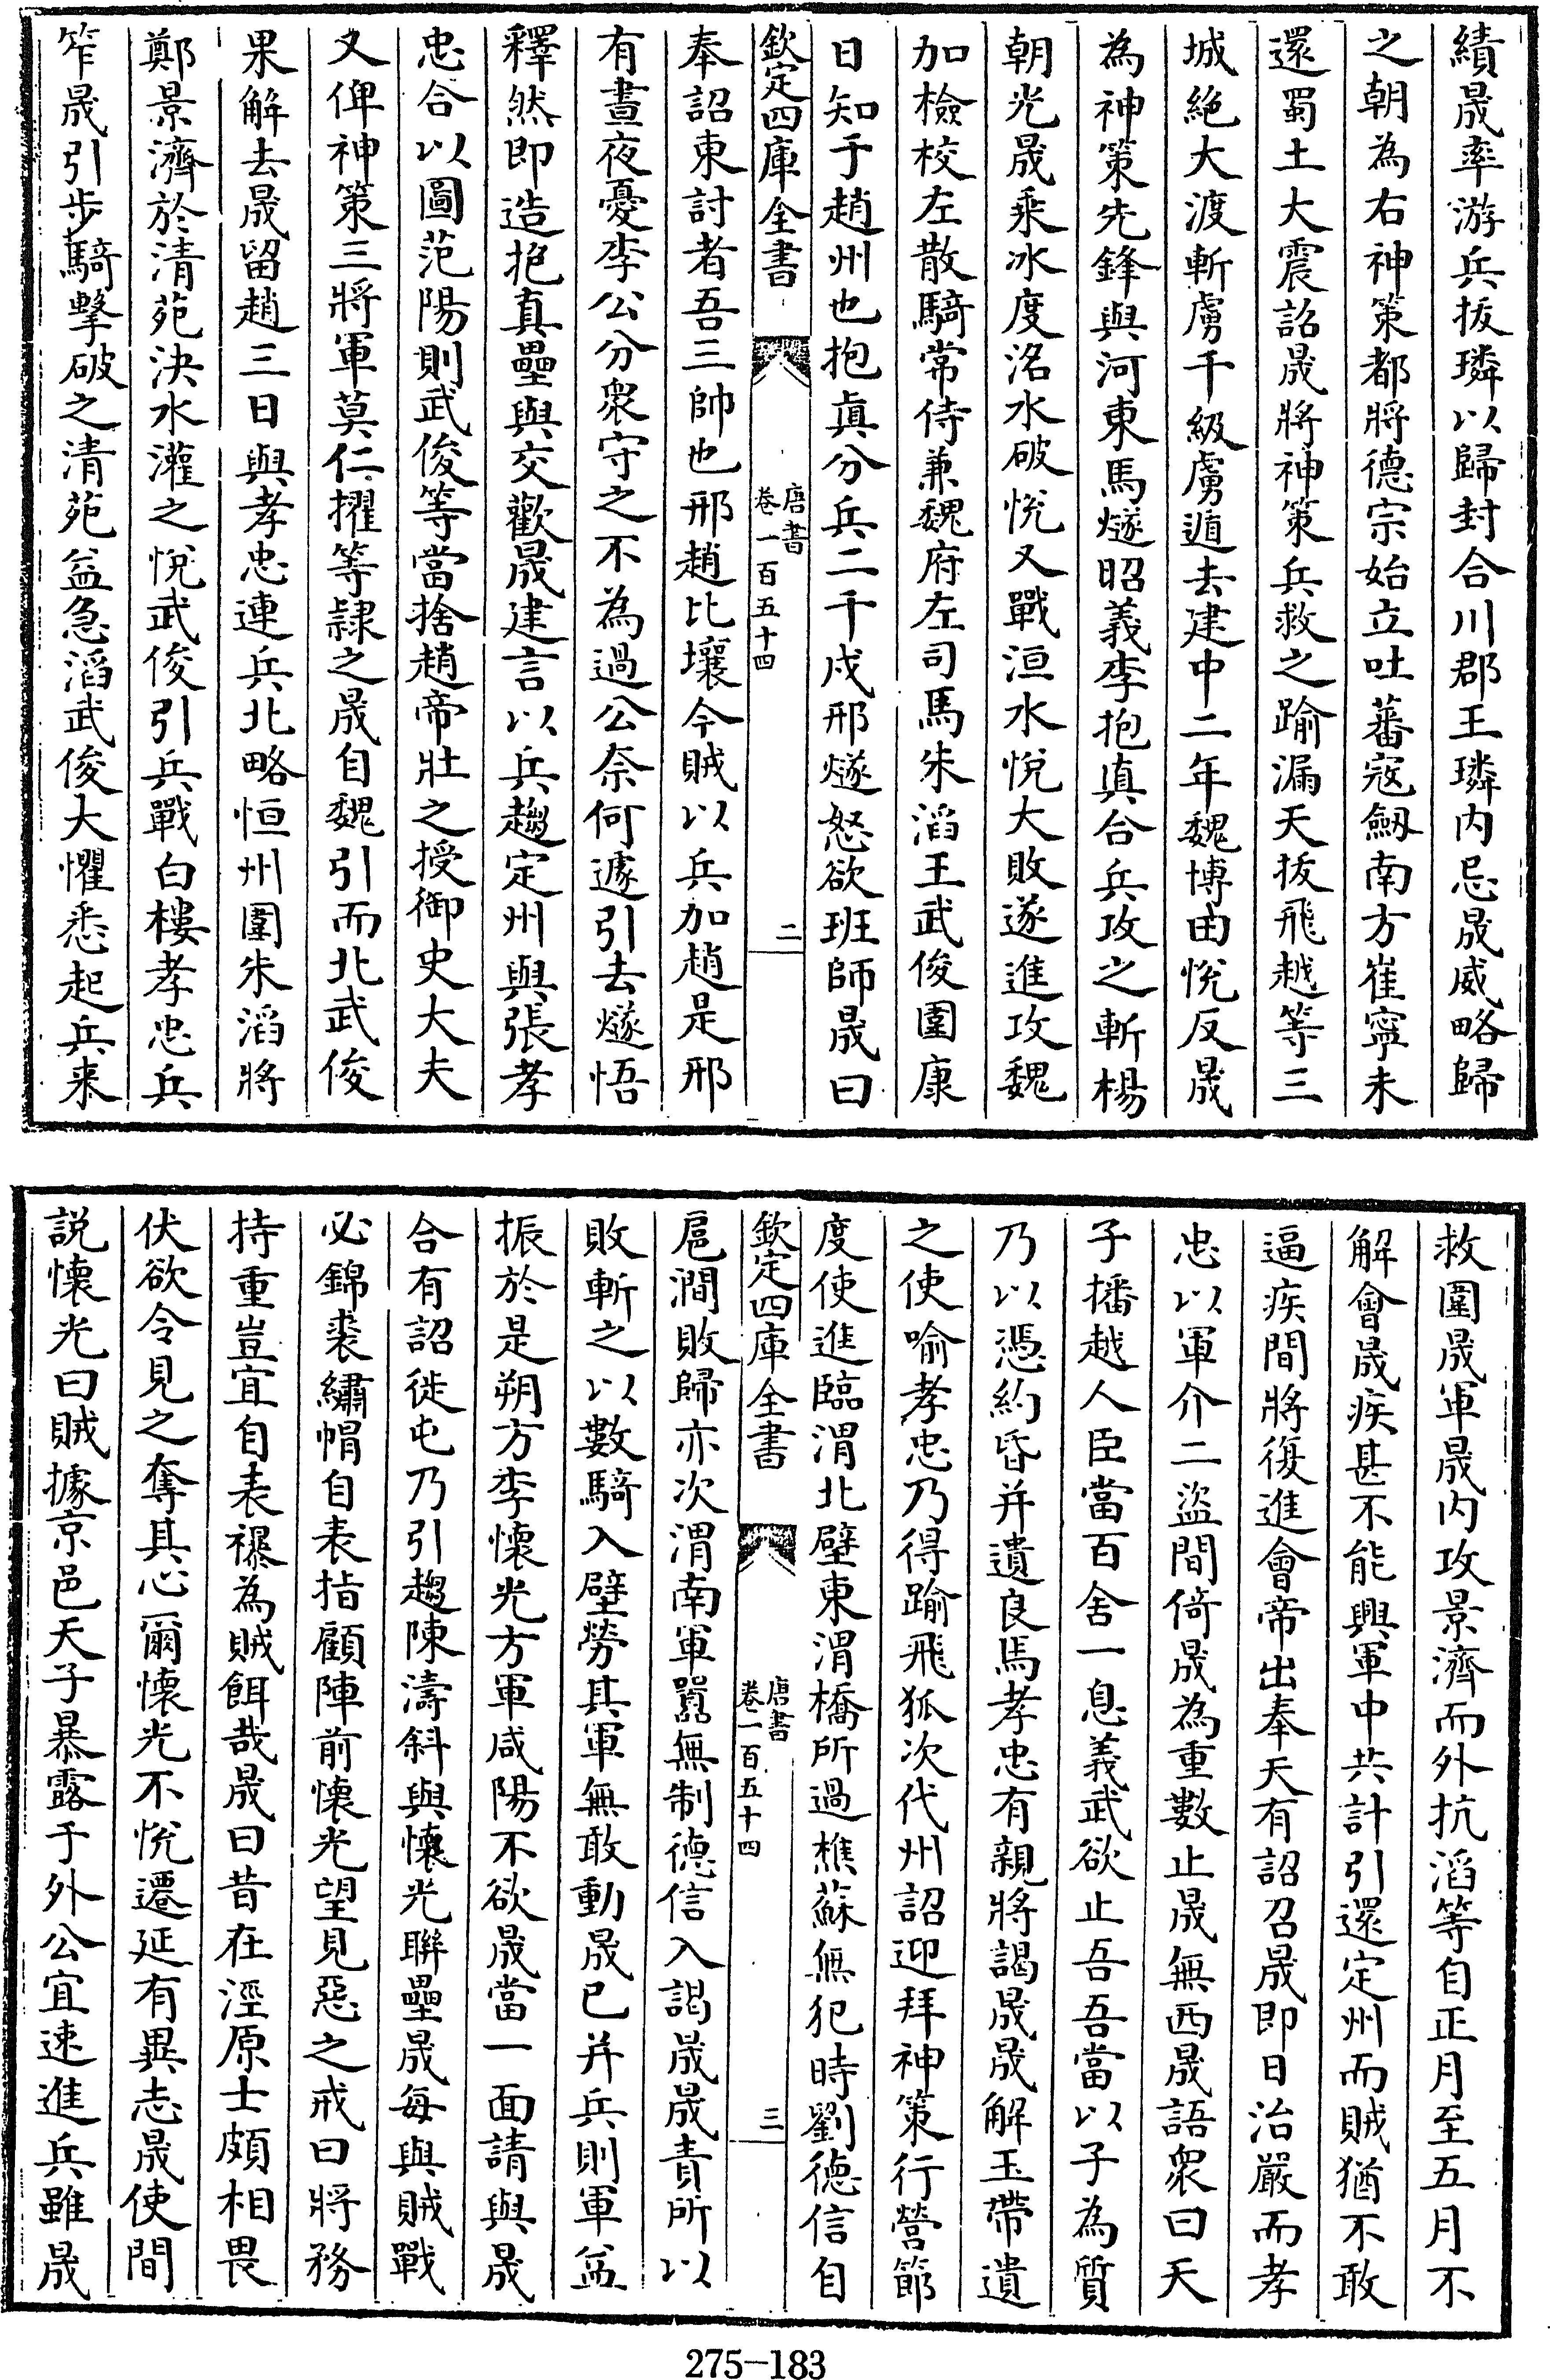 績晟率游兵拔璘以歸封合川郡王璘内忌晟威略歸
之朝為右神策都將德宗始立吐蕃寇劒南方崔寧未
還蜀土大震詔晟將神策兵救之踰漏天拔飛越等三
城絶大渡斬虜千級虜遁去建中二年魏博田悅反晟
為神策先鋒與河東馬燧昭義李抱真合兵攻之斬楊
朝光晟乘冰度洺水破悅又戰洹水悅大敗遂進攻魏
加檢校左散騎常侍兼魏府左司馬朱滔王武俊圍康
日知于趙州也抱真分兵二千戍邢燧怒欲班師晟曰
欽定四庫全書
唐書
卷一百五十四
二
奉詔東討者吾三帥也邢趙比壤今賊以兵加趙是邢
有晝夜憂李公分衆守之不為過公奈何遽引去燧悟
釋然即造抱真壘與交歡晟建言以兵趨定州與張孝
忠合以圖范陽則武俊等當捨趙帝壯之授御史大夫
又俾神策三將軍莫仁擢等隸之晟自魏引而北武俊
果解去晟留趙三日與孝忠連兵北略恒州圍朱滔將
鄭景濟於清苑決水灌之悅武俊引兵戰白樓孝忠兵
笮晟引步騎擊破之清苑益急滔武俊大懼悉起兵来
救圍晟軍晟内攻景濟而外抗滔等自正月至五月不
解會晟疾甚不能興軍中共計引還定州而賊猶不敢
逼疾間將復進會帝出奉天有詔召晟即日治嚴而孝
忠以軍介二盜間倚晟為重數止晟無西晟語衆曰天
子播越人臣當百舍一息義武欲止吾吾當以子為質
乃以憑約昏并遺良馬孝忠有親將謁晟晟解玉帶遺
之使喻孝忠乃得踰飛狐次代州詔迎拜神策行營節
度使進臨渭北壁東渭橋所過樵蘇無犯時劉德信自
欽定四庫全書
唐書
卷一百五十四
三
扈澗敗歸亦次渭南軍囂無制德信入謁晟晟責所以
敗斬之以數騎入壁勞其軍無敢動晟已并兵則軍益
振於是朔方李懷光方軍咸陽不欲晟當一面請與晟
合有詔徙屯乃引趨陳濤斜與懷光聯壘晟每與賊戰
必錦裘繡帽自表指顧陣前懷光望見惡之戒曰將務
持重豈宜自表襮為賊餌哉晟曰昔在涇原士頗相畏
伏欲令見之奪其心爾懷光不悅遷延有異志晟使間
説懷光曰賊據京邑天子暴露于外公宜速進兵雖晟
275-183